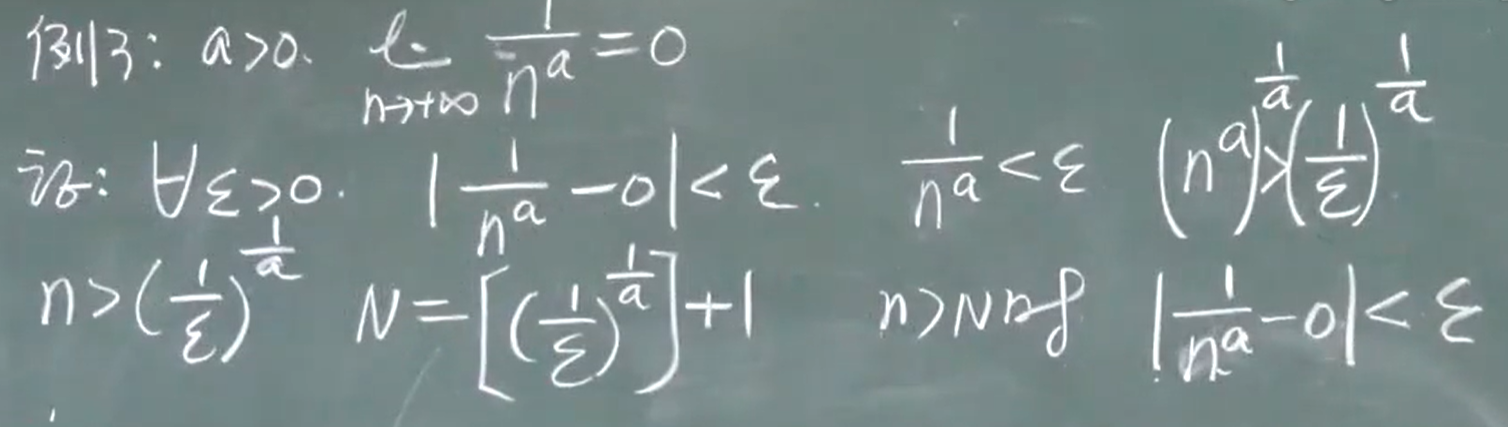 例3: a>0. lim_{n→+∞} 1/n^a = 0
证: ∀ε>0. |1/n^a − 0| < ε. 1/n^a < ε (n^a)^{1/a} > (1/ε)^{1/a}
n > (1/ε)^{1/a} N = [(1/ε)^{1/a}] + 1 n>N时 |1/n^a − 0| < ε